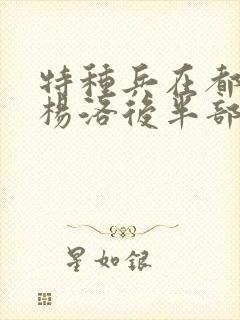 特種兵在都
楊洛後半部
星如銀